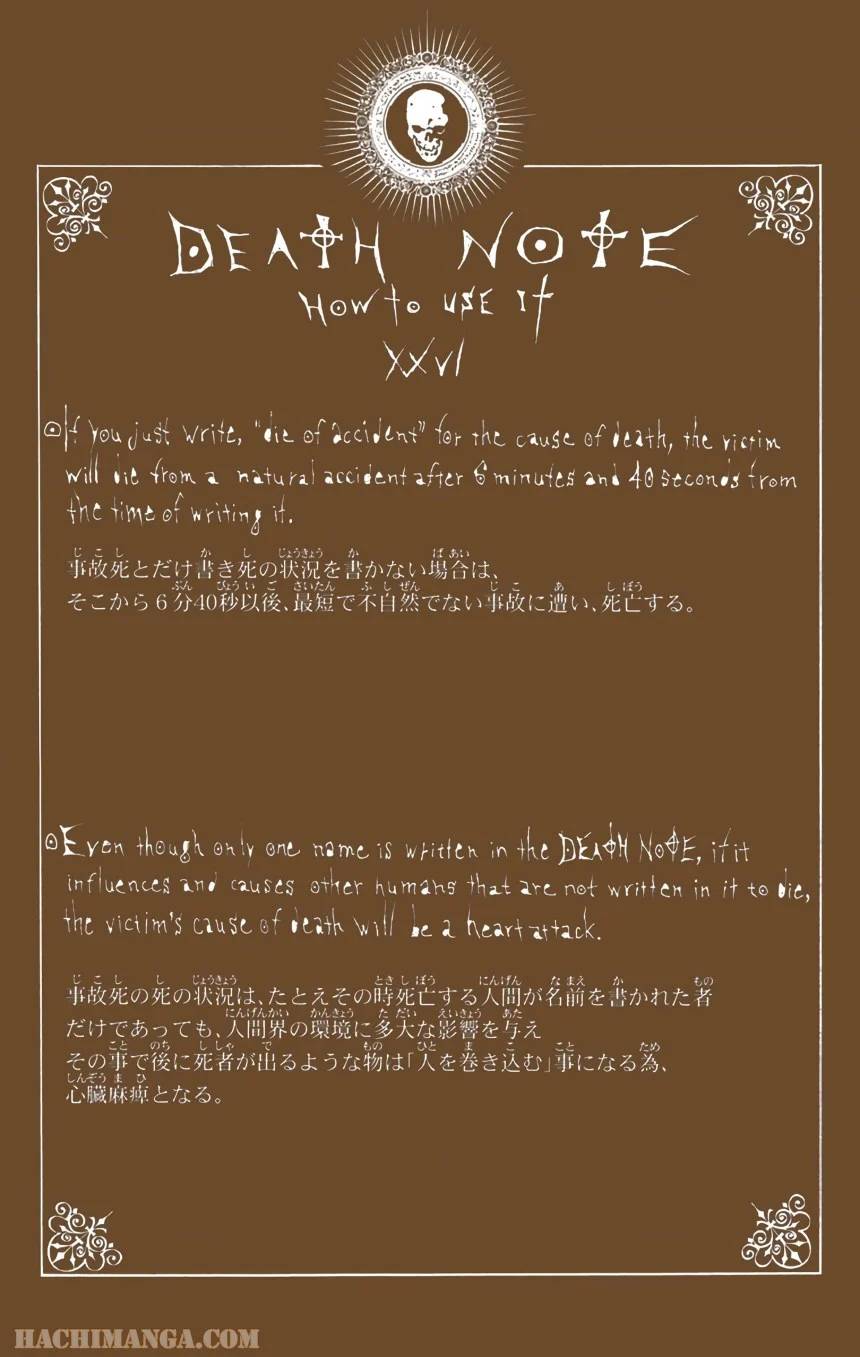 DEATH NOTE
HOW TO USE IT
XXVI
If you just write, "die of accident" for the cause of death, the victim
will die from a natural accident after 6 minutes and 40 seconds from
the time of writing it.
事故死とだけ書き死の状況を書かない場合は、
そこから6分40秒以後、最短で不自然でない事故に遭い、死亡する。
Even though only one name is written in the DEATH NOTE, if it
influences and causes other humans that are not written in it to die,
the victim's cause of death will be a heart attack.
事故死の死の状況は、たとえその時死亡する人間が名前を書かれた者
だけであっても、人間界の環境に多大な影響を与え
その事で後に死者が出るような物は「人を巻き込む」事になる為、
心臓麻痺となる。
HACHIMANGA.COM